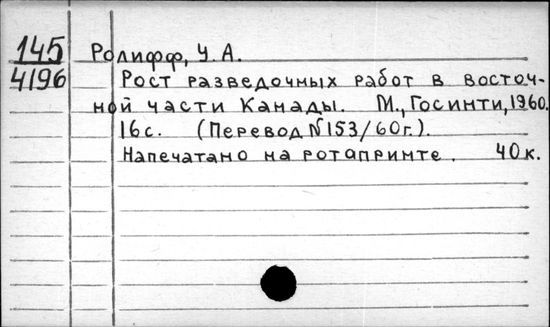 145 Ролифф, У. А.
4196 Рост разведочных работ в восточ-
ной части Канады. М., Госинти, 1960.
16 с. (Перевод N 153/60г.).
Напечатано на ротапринте. 40 к.